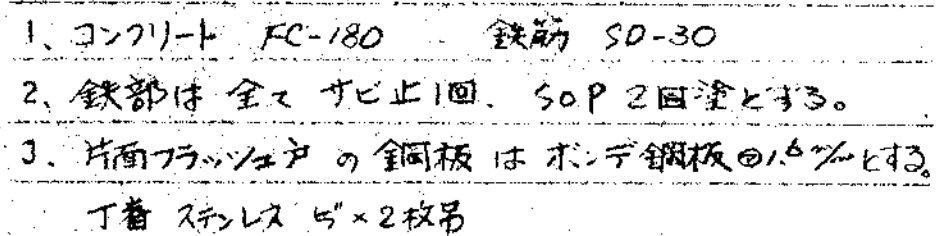 1、コンクリート FC-180 鉄筋 SD-30
2、鉄部は全てサビ止1回、SOP 2回塗とする。
3、片面フラッシュ戸の鋼板はボンデ鋼板⊖1.6m/mとする。
丁番 ステンレス 5"×2枚吊